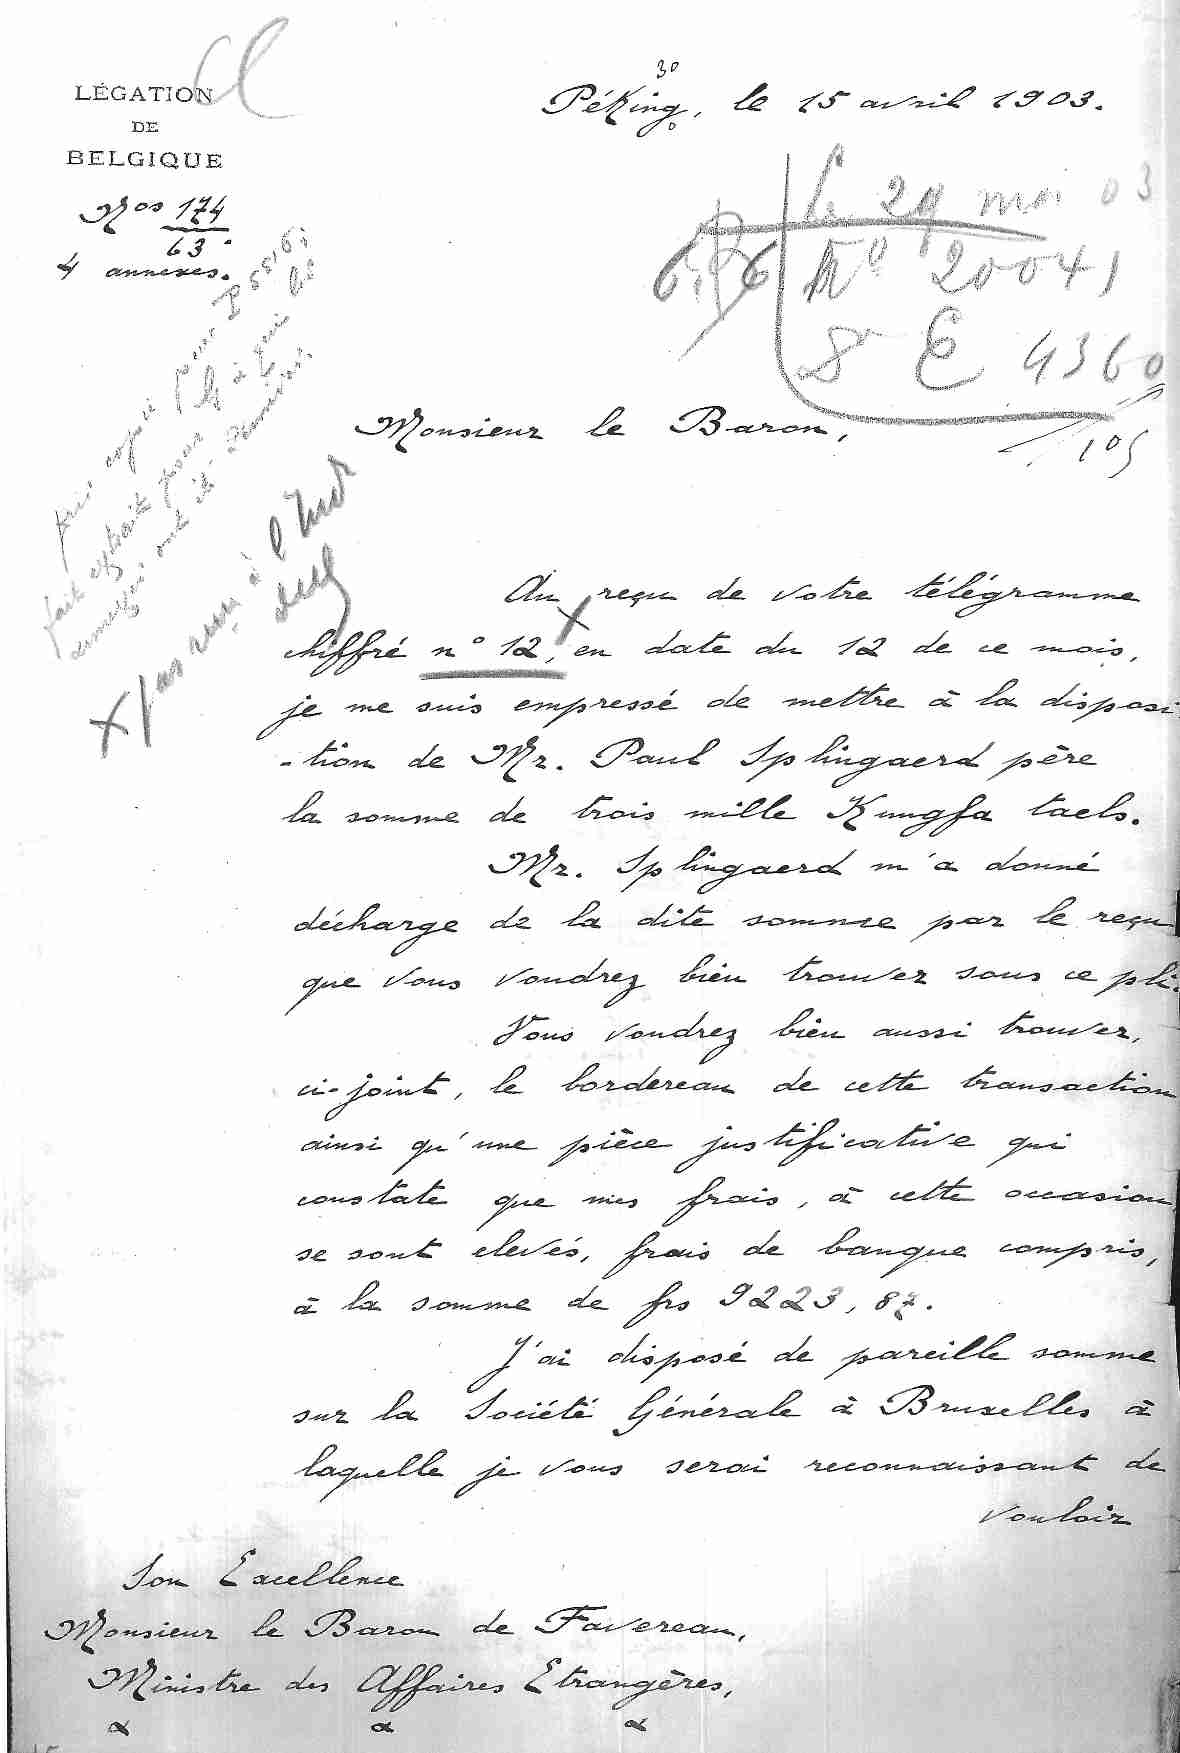 30
LÉGATION
DE
BELGIQUE
Péking, le 15 avril 1903.
Nos 174
63
4 annexes.
Le 29 mai 03
No 20041
Sn E 4360
105
Monsieur le Baron,
Au reçu de votre télégramme
chiffré n° 12, en date du 12 de ce mois,
je me suis empressé de mettre à la disposi
-tion de Mr. Paul Splingaerd père
la somme de trois mille Kungfa taels.
Mr. Splingaerd m'a donné
décharge de la dite somme par le reçu
que vous voudrez bien trouver sous ce pli.
Vous voudrez bien aussi trouver,
ci-joint, le bordereau de cette transaction
ainsi qu'une pièce justificative qui
constate que mes frais, à cette occasion,
se sont elevés, frais de banque compris,
à la somme de frs 9223,87.
J'ai disposé de pareille somme
sur la Société Générale à Bruxelles à
laquelle je vous serai reconnaissant de
vouloir
Son Excellence
Monsieur le Baron de Favereau,
Ministre des Affaires Etrangères,